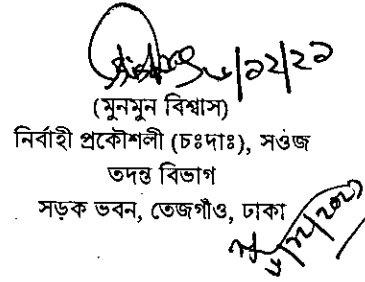 (মুনমুন বিশ্বাস)
নির্বাহী প্রকৌশলী (চঃদাঃ), সওজ
তদন্ত বিভাগ
সড়ক ভবন, তেজগাঁও, ঢাকা